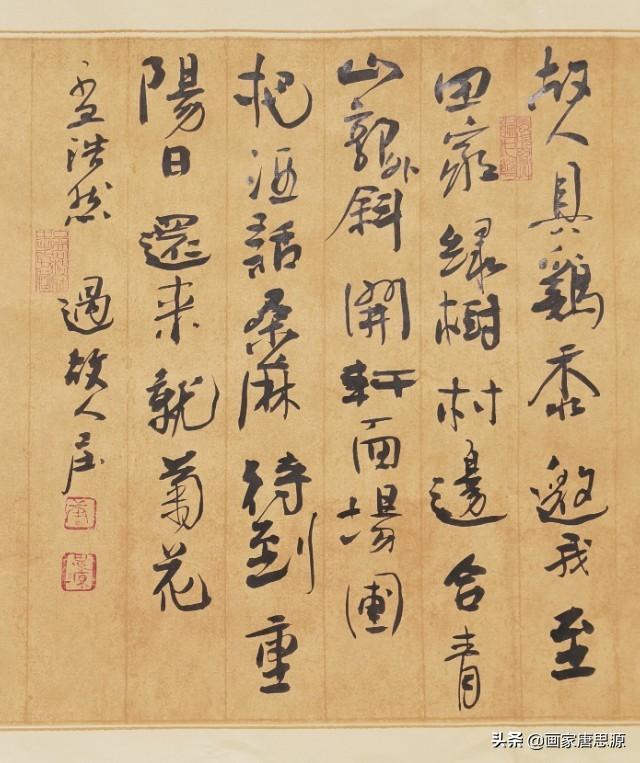 故人具鷄黍邀我至
田家緑樹村邊合青
山郭外斜開軒面場圃
把酒話桑麻待到重
陽日還来就菊花
孟浩然 過故人庄
头条 @画家唐思源